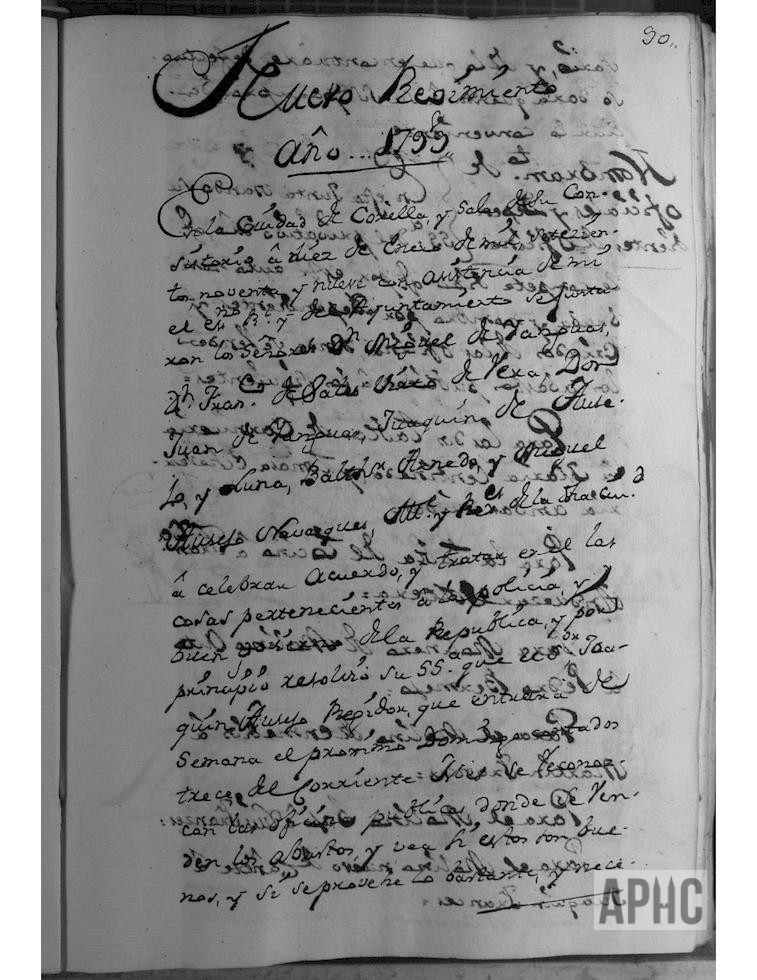 90.,
Nuevo Regimiento
año... 1799
En la Ciudad de Corella, y Sala de su Con-
sistorio â diez de Enero de mil, setezien-
tos noventa y nueve con asistencia de mi
el es.no R.l y del Ayuntamiento se junta-
ron los Señores D.n Miguel de
D.n Fran.co de Sales de Vera, Don
Juan de Juaquin de Ause-
so, y Luna, Balthar Arnedo, y Miguel
Ausejo Navasques, All.e y Re.s de la Ciu.d
â celebrar Acuerdo, y tratar en èl las
cosas pertenecientes a la policía, y
buen de la Republica, y por
principio resolvió su SS. que el S.or Joa-
quin Ausejo Regidor, que entrará de
Semana el proximo Domingo contados
trece del Corriente mes se reconoz-
can las oficinas publicas donde se ven-
den los abastos, y vea si estos son bue-
nos, y si se provehe lo bastante, y nece-
APHC